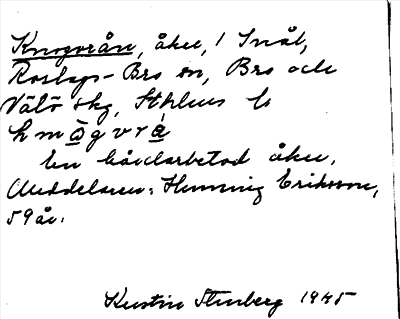 Knogvrån, åker, 1 Snål,
Roslags-Bro sn, Bro och
Vätö skg, Sthlms l.
En hårdarbetad åker.
Meddelaren: Henning Eriksson,
59 år.
Kerstin Stenberg 1945